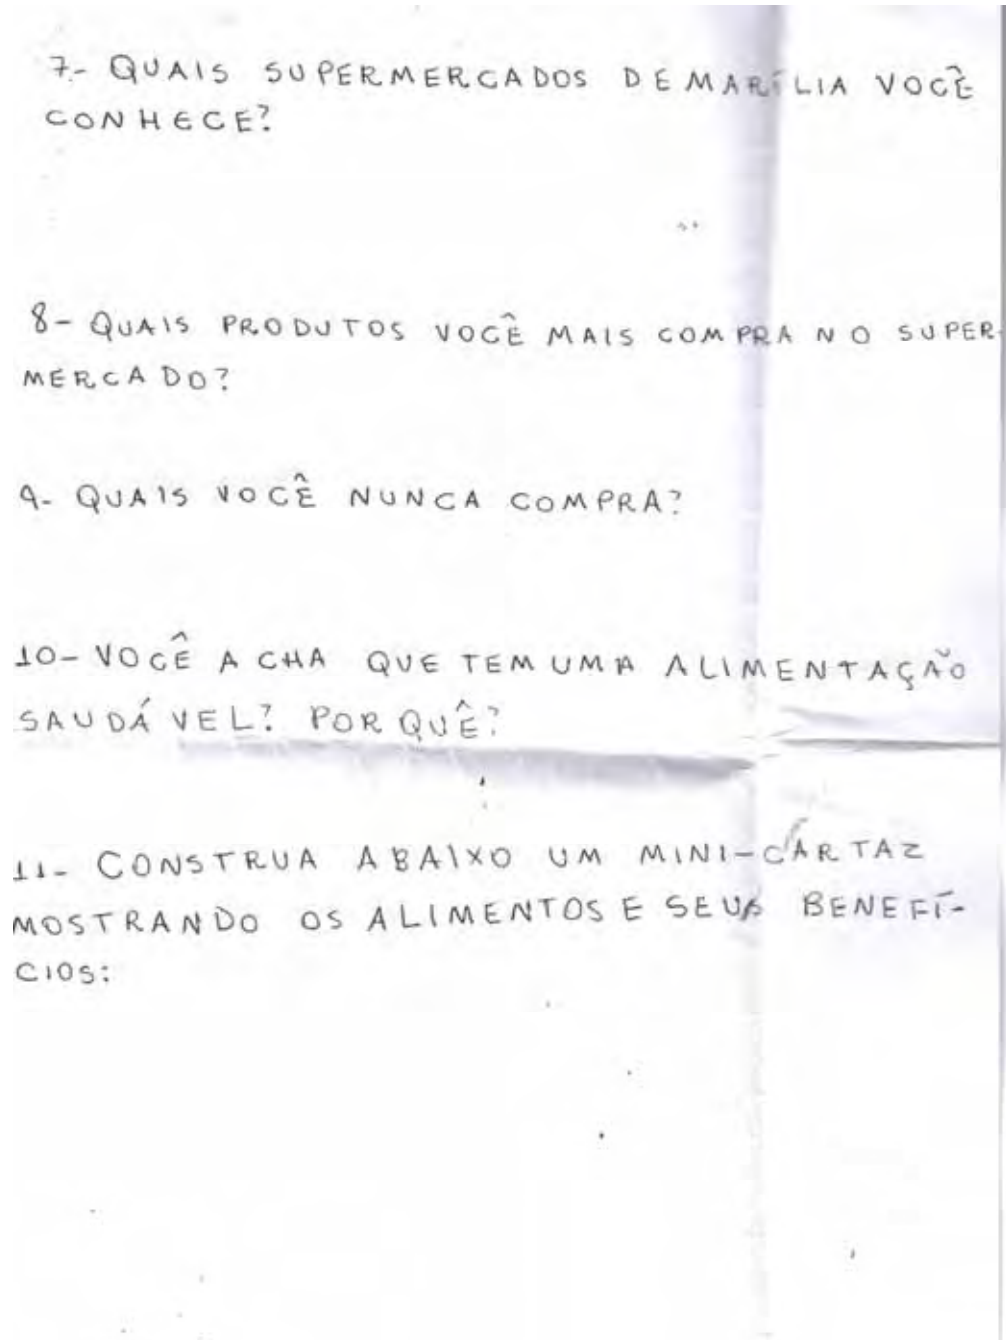 7- QUAIS SUPERMERCADOS DE MARÍLIA VOCÊ
CONHECE?
8- QUAIS PRODUTOS VOCÊ MAIS COMPRA NO SUPER
MERCADO?
9- QUAIS VOCÊ NUNCA COMPRA?
10- VOCÊ ACHA QUE TEM UMA ALIMENTAÇÃO
SAUDÁVEL? POR QUÊ?
11- CONSTRUA ABAIXO UM MINI-CARTAZ
MOSTRANDO OS ALIMENTOS E SEUS BENEFÍ-
CIOS: